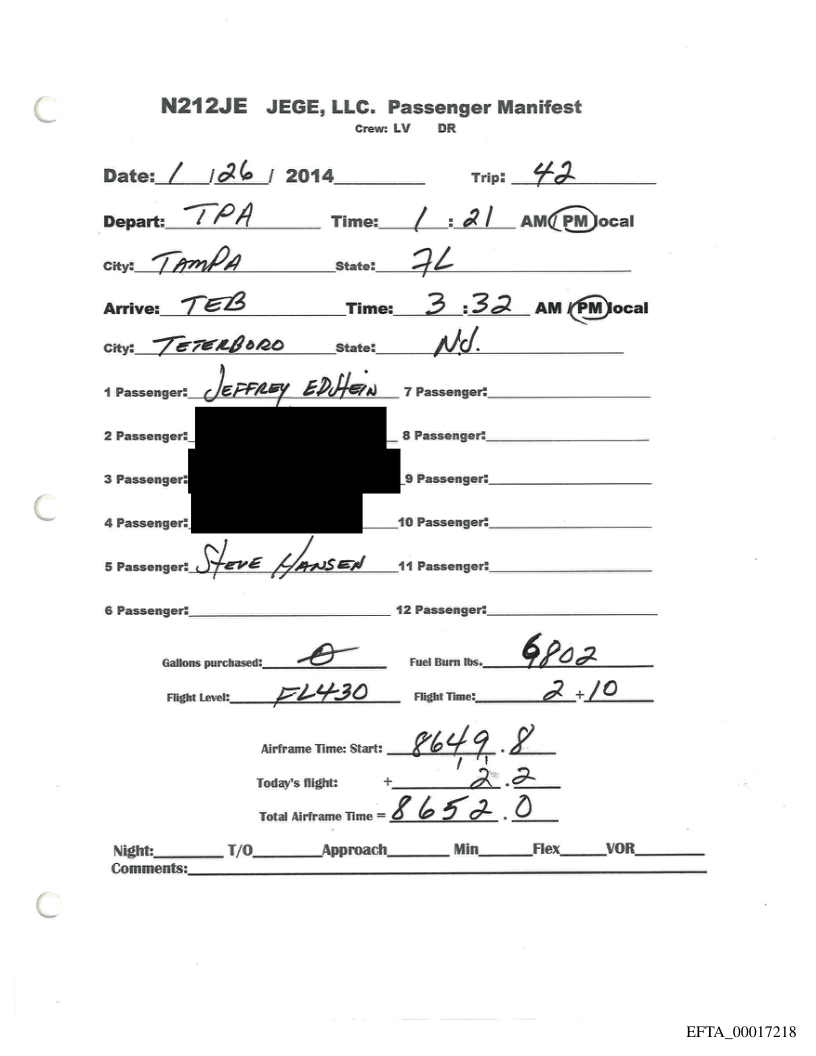 N212JE JEGE, LLC. Passenger Manifest
Crew: LV DR
Date: 1 / 26 / 2014 Trip: 42
Depart: TPA Time: 1 : 21 AM / PM local
City: TAMPA State: FL
Arrive: TEB Time: 3 : 32 AM / PM local
City: TETERBORO State: NJ.
1 Passenger: JEFFREY 7 Passenger:
2 Passenger: 8 Passenger:
3 Passenger: 9 Passenger:
4 Passenger: 10 Passenger:
5 Passenger: STEVE HANSEN 11 Passenger:
6 Passenger: 12 Passenger:
Gallons purchased: 0 Fuel Burn lbs. 9802
Flight Level: FL430 Flight Time: 2 + 10
Airframe Time: Start: 8649 . 8
1 1
Today's flight: + 2 . 2
Total Airframe Time = 8652 . 0
Night: T/O Approach Min Flex VOR
Comments:
EFTA_00017218